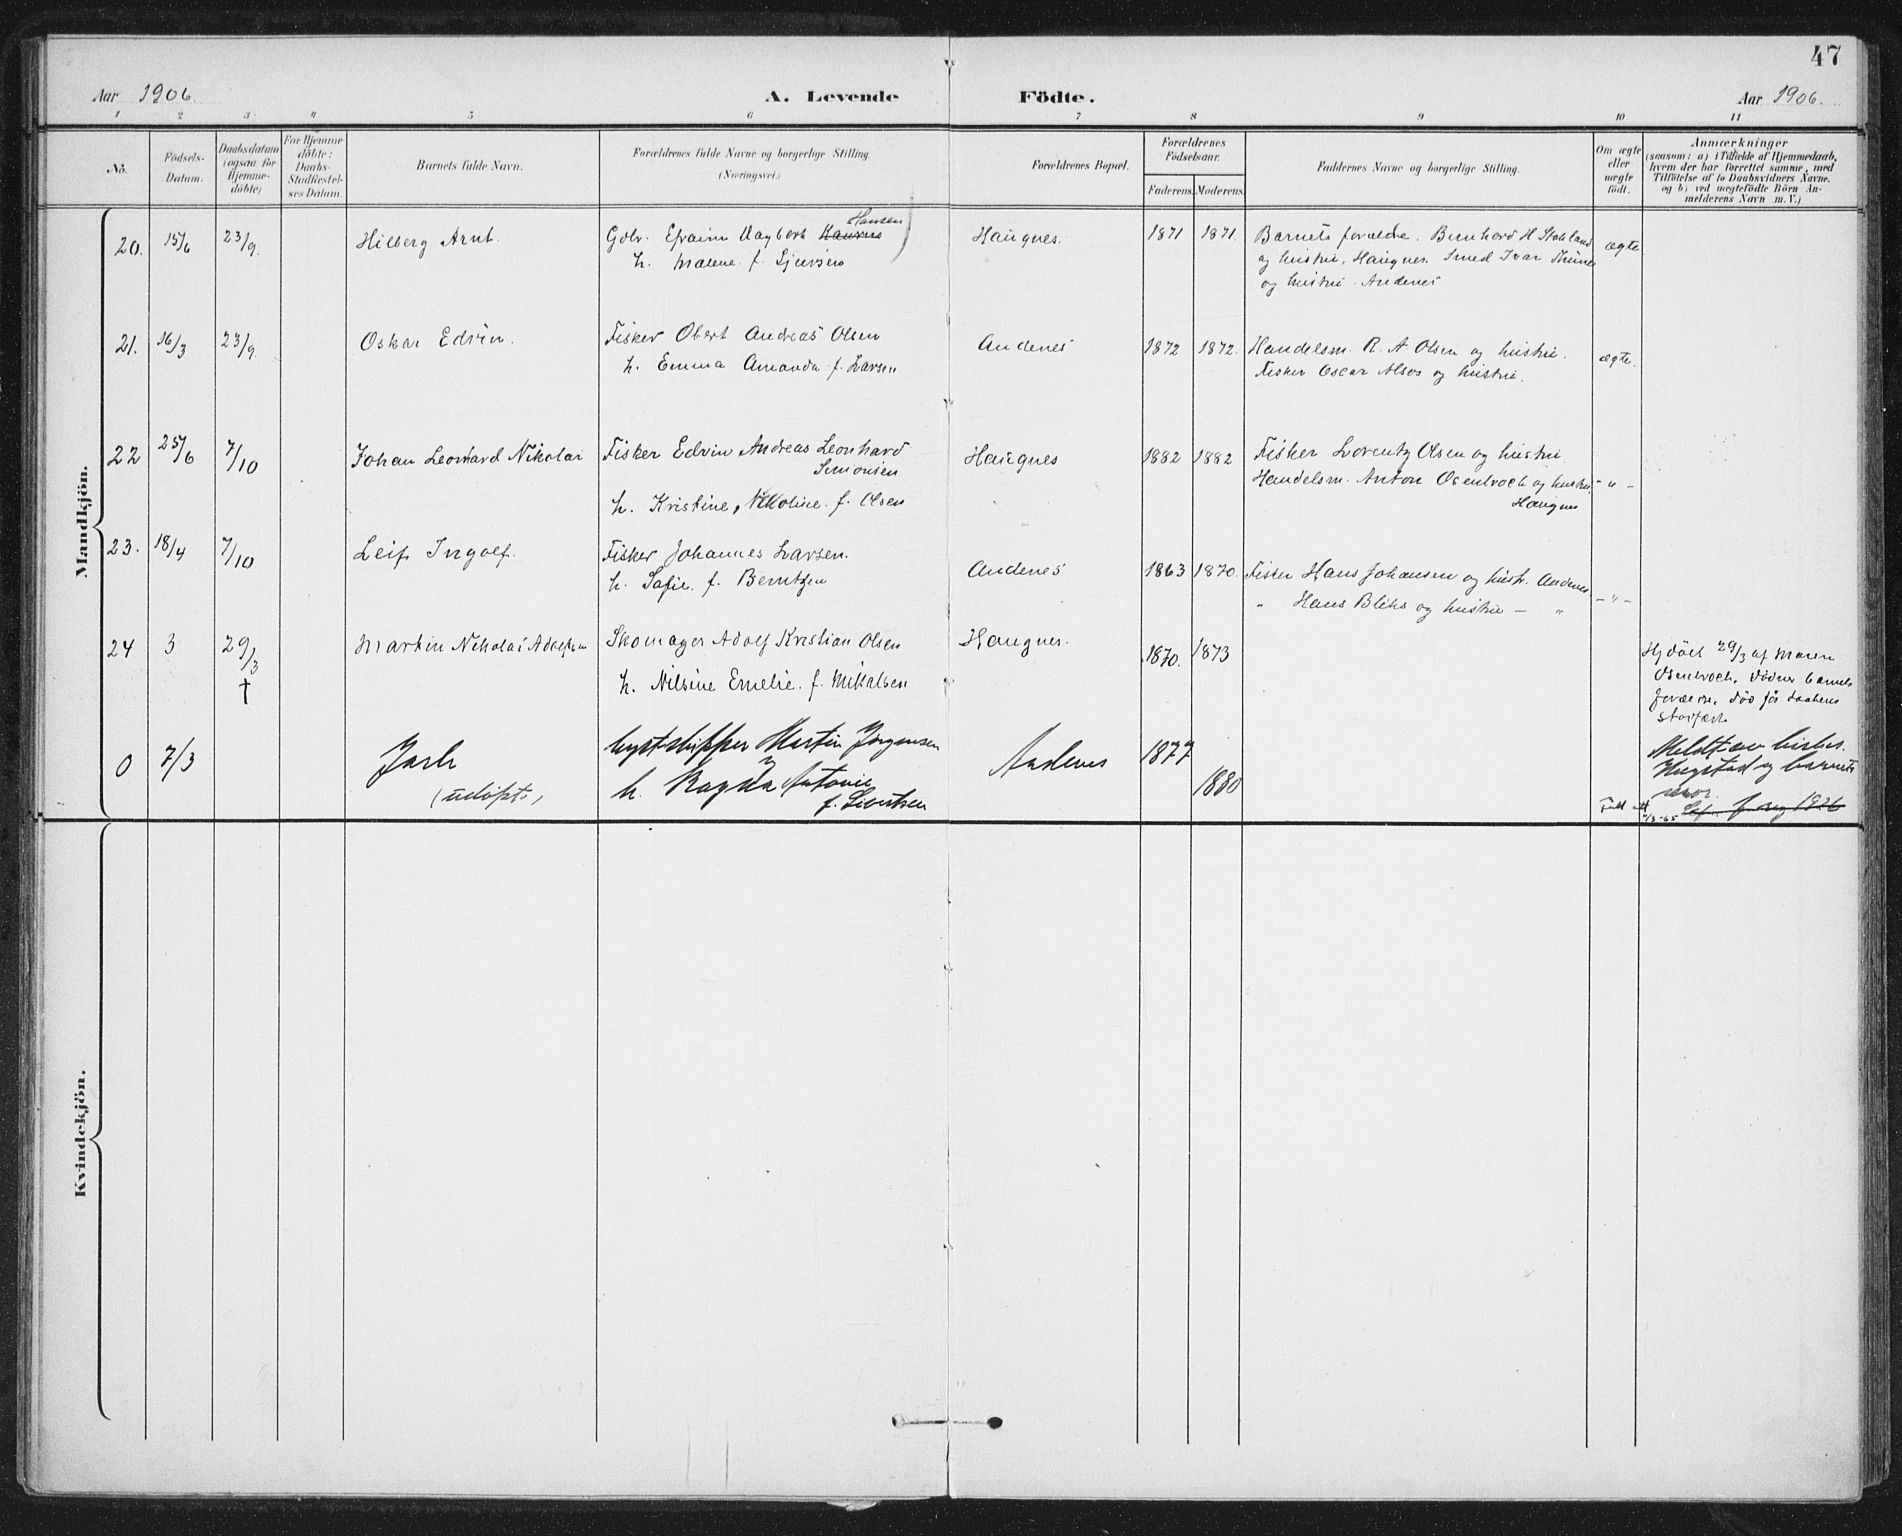 47
Aar 1906. A. Levende Födte. Aar 1906.
1 2 3 4 5 6 7 8 9 10 11
No.
Födsels-
Datum.
Daabsdatum
(ogsaa for
Hjemme-
döbte)
For Hjemme
döbte:
Daabs-
Stadfæstel-
ses Datum.
Barnets fulde Navn.
Forældrenes fulde Navne og borgerlige Stilling.
(Næringsvei.)
Forældrenes Bopæl.
Forældrenes
Födselsaar.
Faderens. Moderens.
Faddernes Navne og borgerlige Stilling.
Om ægte
eller
uægte
födt.
Anmærkninger
(saasom: a) i Tilfælde af Hjemmedaab,
hvem der har forrettet samme, med
Tilföielse af to Daabsvidners Navne.
og b) ved uægtefödte Börn An-
melderens Navn m. V.)
Mandkjön.
20. 15/6 23/9. Hilberg Arnt. Gdbr. Efraim Dagbert Hansen
h. Malene f. Sjursen
Haugnes. 1871 1871.
Barnets forældre. Bernhard H. Stokland
og hustru, Haugnes. Smed Ivar
og hustru. Andenes
ægte
21. 16/3 23/9. Oskar Edvin. Fisker Obert Andreas Olsen
h. Emma Amanda f. Larsen
Andenes 1872 1872.
Handelsm. R. A Olsen og hustru.
Fisker Oscar Alsos og hustru.
ægte.
22 25/6 7/10 Johan Leonhard Nikolai Fisker Edvin Andreas Leonhard
Simonsen
h. Kristine Nikoline f. Olsen
Haugnes 1882 1882
Fisker Lorentz Olsen og hustru
Handelsm. Anton Osenbroch og hustru, - " -
Haugnes
23. 18/4 7/10 Leif Ingolf. Fisker Johannes Larsen.
h. Sofie f. Berntzen
Andenes 1863 1870.
Fisker Hans Johansen og hustr. Andenes.
" Hans Bliks og hustru - " - " -
24 3 29/3 † Martin Nikolai Adolfsen Skomager Adolf Kristian Olsen
h. Nilsine Emelie. f. Mikalsen
Haugnes. 1870. 1873
Hjdöbt 29/3 af Maren
Osenbroch. Vidner barnets
forældre. Död før daabens
stadfæst.
0 7/3 Jarle
(udöpt)
Lystskipper Martin Jörgensen
h. Ragna Antonie
f. Sivertsen
Andenes 1877 1880
Meldt av kirkes.
Hugstad og barnets
mor.
Kvindekjön.